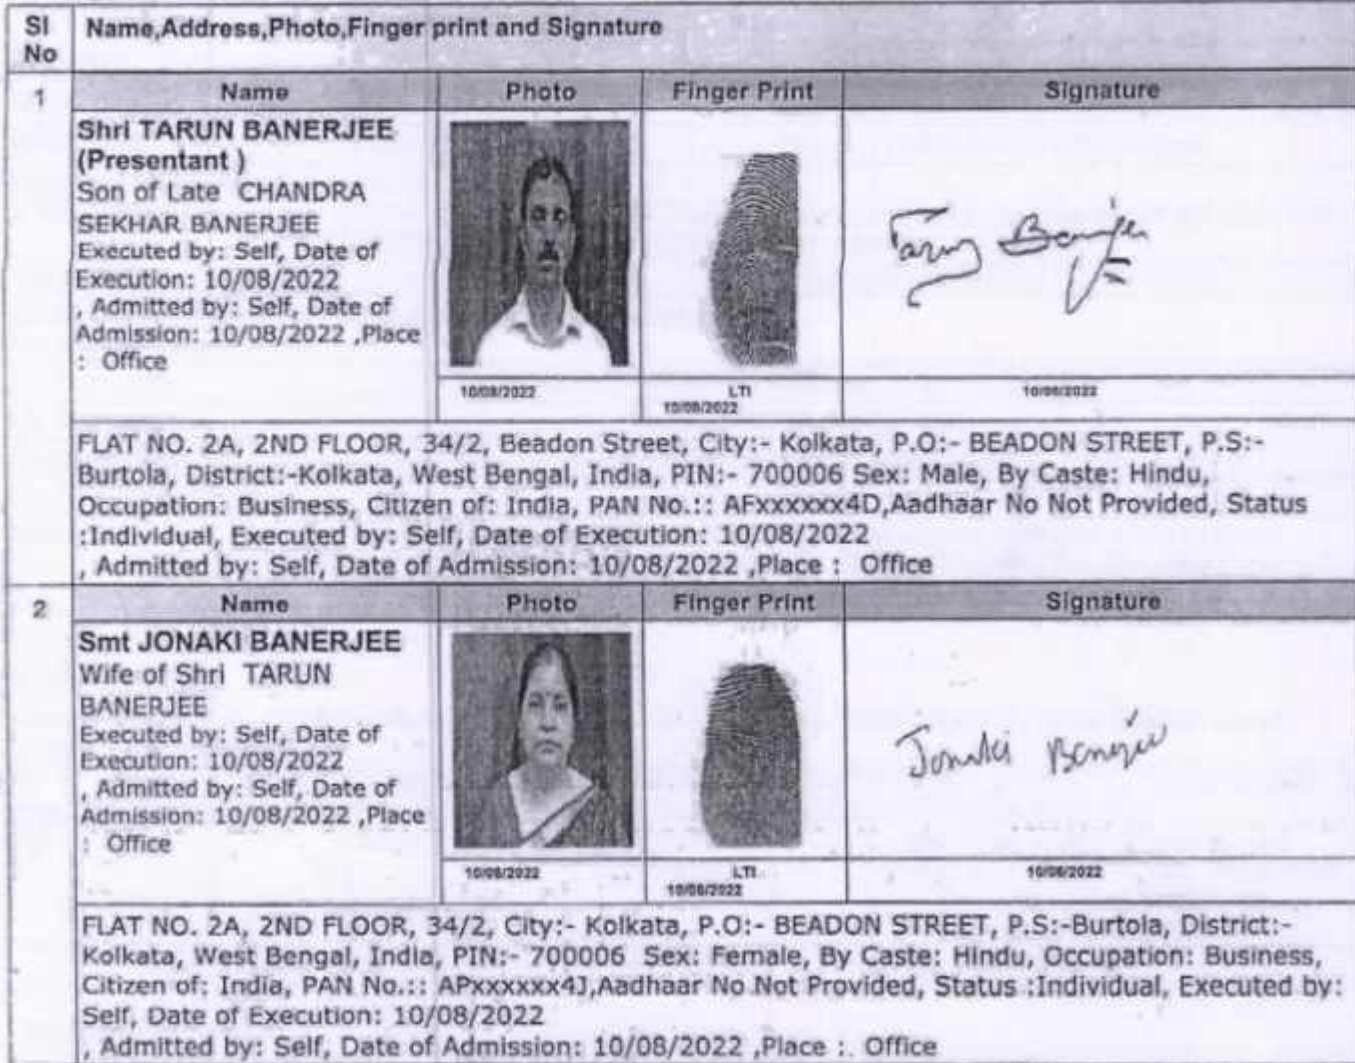 Sl No Name,Address,Photo,Finger print and Signature
1 Name Photo Finger Print Signature
Shri TARUN BANERJEE
(Presentant )
Son of Late CHANDRA
SEKHAR BANERJEE
Executed by: Self, Date of
Execution: 10/08/2022
, Admitted by: Self, Date of
Admission: 10/08/2022 ,Place
: Office
Tarun Banerjee
10/08/2022 LTI 10/08/2022 10/08/2022
FLAT NO. 2A, 2ND FLOOR, 34/2, Beadon Street, City:- Kolkata, P.O:- BEADON STREET, P.S:-
Burtola, District:-Kolkata, West Bengal, India, PIN:- 700006 Sex: Male, By Caste: Hindu,
Occupation: Business, Citizen of: India, PAN No.:: AFxxxxxx4D,Aadhaar No Not Provided, Status
:Individual, Executed by: Self, Date of Execution: 10/08/2022
, Admitted by: Self, Date of Admission: 10/08/2022 ,Place : Office
2 Name Photo Finger Print Signature
Smt JONAKI BANERJEE
Wife of Shri TARUN
BANERJEE
Executed by: Self, Date of
Execution: 10/08/2022
, Admitted by: Self, Date of
Admission: 10/08/2022 ,Place
: Office
Jonaki Banerjee
10/08/2022 LTI 10/08/2022 10/08/2022
FLAT NO. 2A, 2ND FLOOR, 34/2, City:- Kolkata, P.O:- BEADON STREET, P.S:-Burtola, District:-
Kolkata, West Bengal, India, PIN:- 700006 Sex: Female, By Caste: Hindu, Occupation: Business,
Citizen of: India, PAN No.:: APxxxxxx4J,Aadhaar No Not Provided, Status :Individual, Executed by:
Self, Date of Execution: 10/08/2022
, Admitted by: Self, Date of Admission: 10/08/2022 ,Place : Office